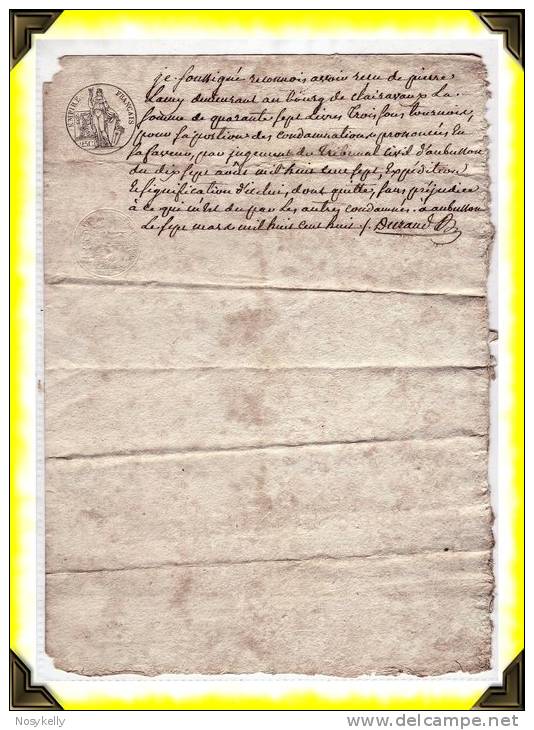 je soussigné reconnois avoir recu de pierre
Lamy demeurant au bourg de clairavaux La
somme de quarante sept Livres Trois sous tournois,
pour sa portion des condamnations prononcées En
sa faveur, par jugement du Tribunal Civil d'aubusson
du dix sept août mil huit cent sept, Expédition
et signification d'icelui, dont quitte, sans préjudice
à ce qui m'est du par Les autres condamnés. à aubusson
Le sept mars mil huit cent huit /. Durand
EMPIRE FRANÇAIS
Nosykelly
www.delcampe.net